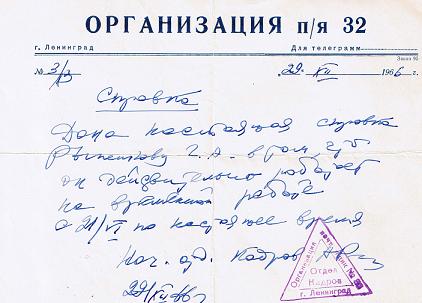 ОРГАНИЗАЦИЯ п/я 32
г. Ленинград Для телеграмм
Заказ 95
№ 3/3 29. XII 1966 г.
Справка
Дана настоящая справка
Г. А. в том, что
он действительно работает
на временной работе
с 21/VI по настоящее время
Нач. отд. Кадров
29/XII 66 г.
Организация почт. ящик №
Отдел
Кадров
г. Ленинград